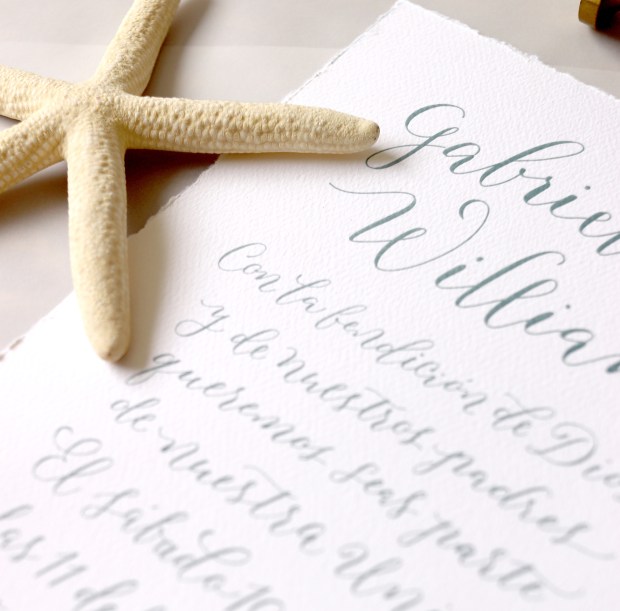 Gabriel
William
Con la bendición de Dios
y de nuestros padres
queremos seas parte
de nuestra Uni
El sábado 1
las 11 de